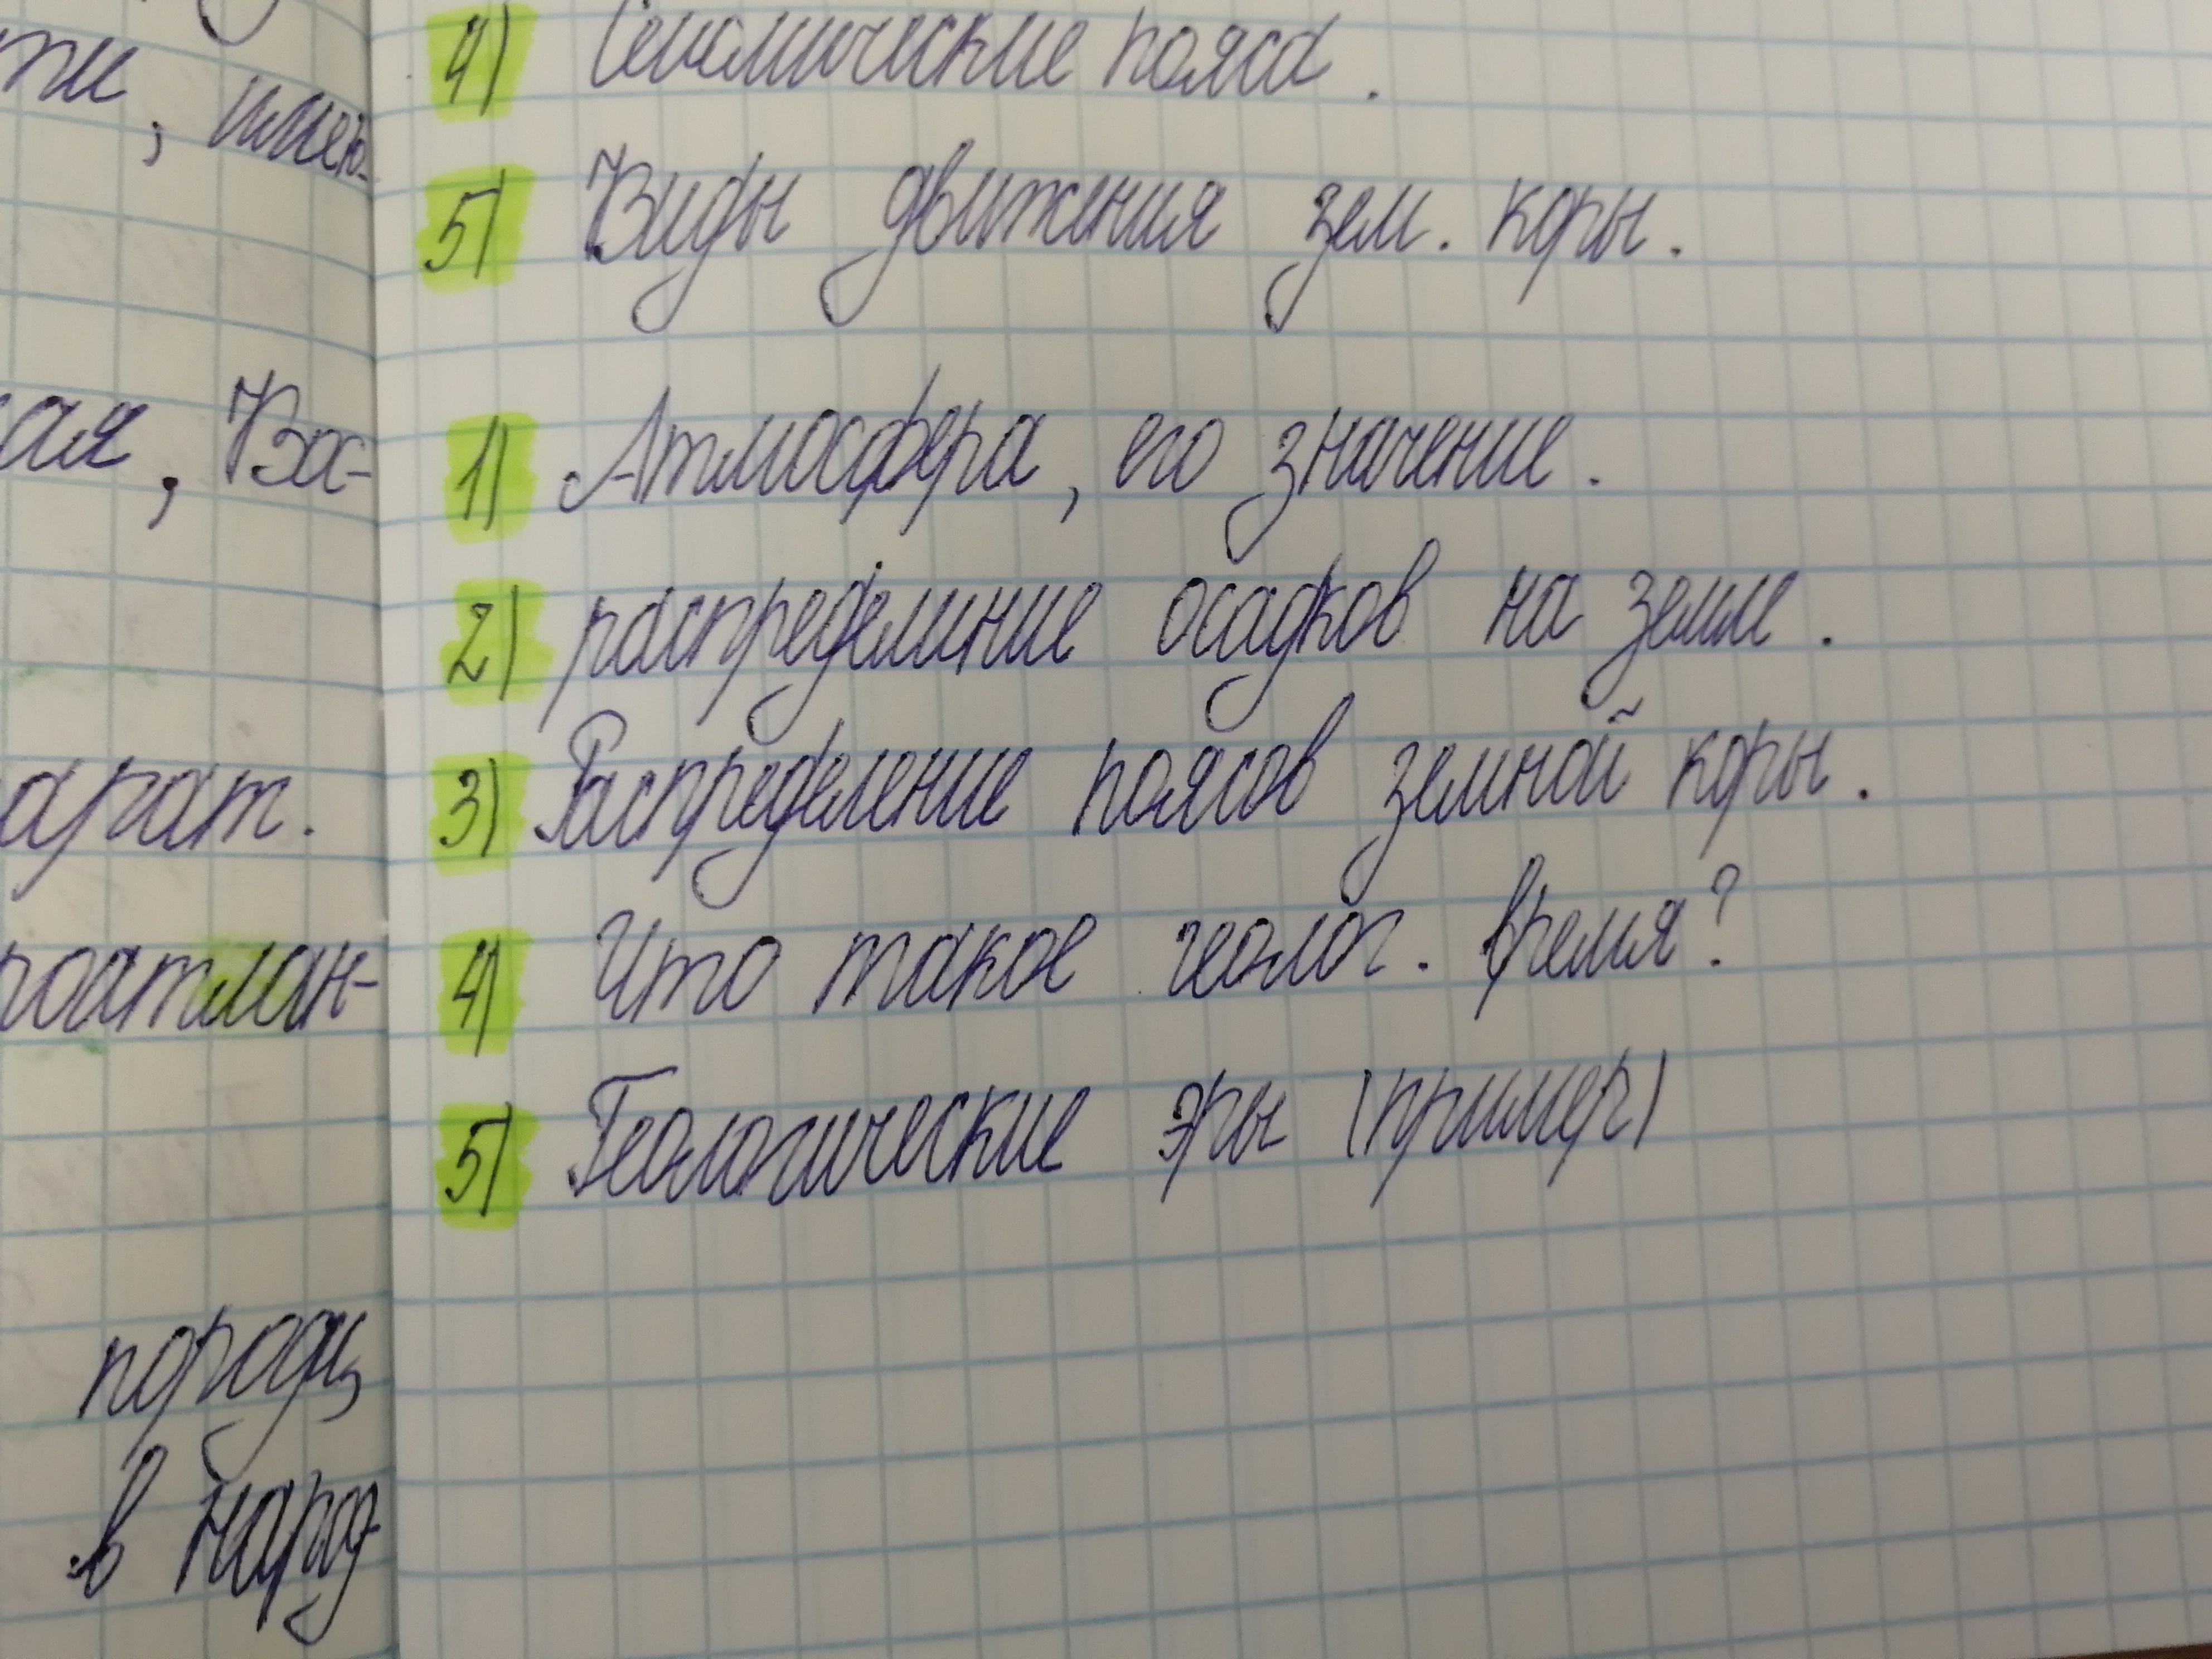 ти, имею-
ая, Ва-
арат.
роатлан-
породы,
в народ-
4) Сейсмические пояса.
5) Виды движения зем. коры.
1) Атмосфера, его значение.
2) распределиние осадков на земле.
3) Распределение поясов земной коры.
4) Что такое геолог. время?
5) Геологические эры (пример)